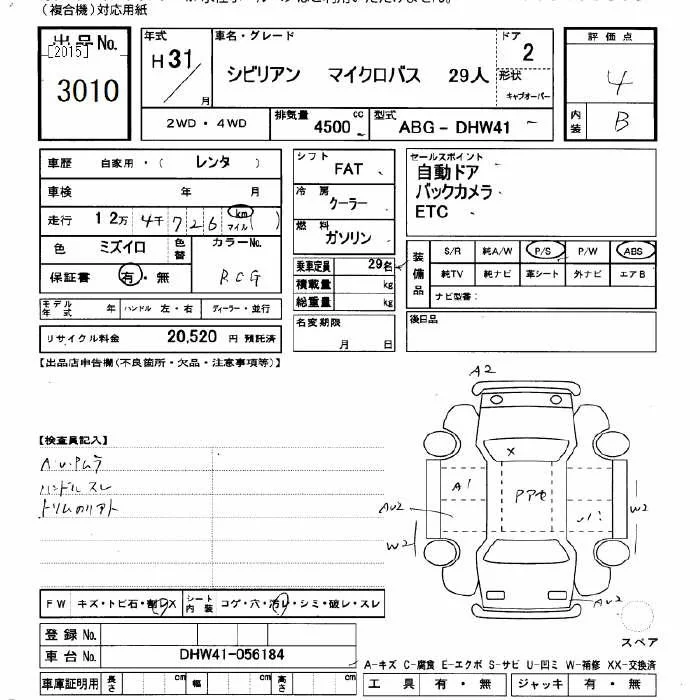 (複合機)対応用紙
出品No.
[2015]
3010
年式
H31/
月
車名・グレード
シビリアン マイクロバス 29人
ドア
2
形状
キャブオーバー
評価点
4
内装
B
2WD・4WD
排気量
4500 cc
型式
ABG-DHW41
車歴 自家用・( レンタ )
車検 年 月
走行 12万 4千 726 km マイル ( )
色 ミズイロ
色替
カラーNo.
RCG
保証書 有・無
モデル年式 年
ハンドル 左・右
ディーラー・並行
リサイクル料金 20,520 円 預託済
シフト
FAT
冷房
クーラー
燃料
ガソリン
乗車定員 29名
積載量 kg
総重量 kg
名変期限
月 日
セールスポイント
自動ドア
バックカメラ
ETC
装備品
S/R 純A/W P/S P/W ABS
純TV 純ナビ 革シート 外ナビ エアB
ナビ型番:
後日品
【出品店申告欄(不良箇所・欠品・注意事項等)】
【検査員記入】
ハンドル スレ
A2
X
A1
AU2
W2
W2
AU2
スペア
FW キズ・トビ石・割レX
シート内装 コゲ・穴・汚レ・シミ・破レ・スレ
登録No.
車台No. DHW41-056184
車庫証明用 長さ cm 幅 cm 高さ cm
A-キズ C-腐食 E-エクボ S-サビ U-凹ミ W-補修 XX-交換済
工具 有・無 ジャッキ 有・無